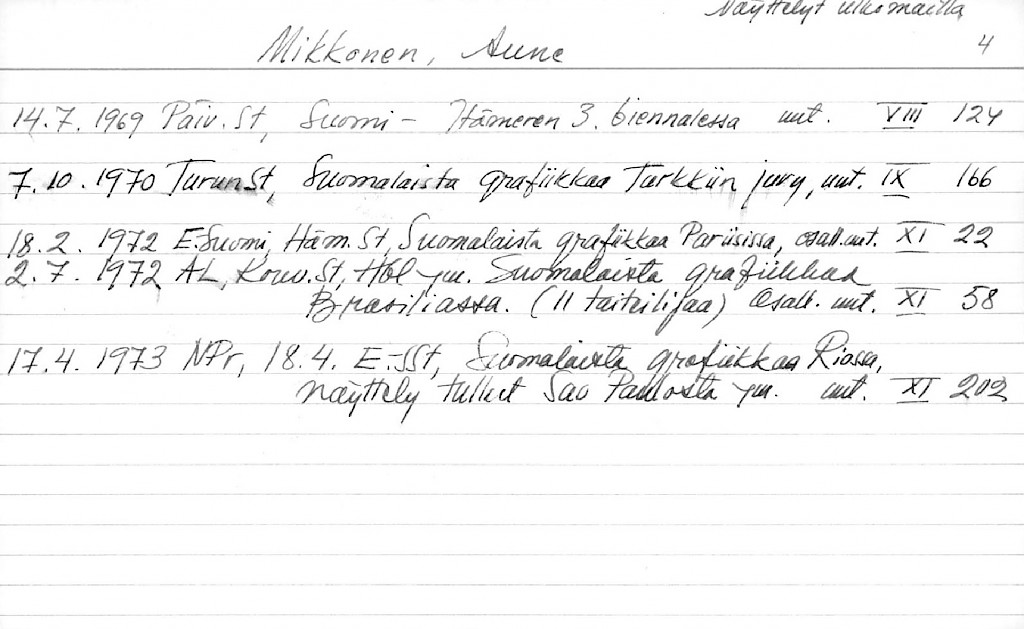 Näyttelyt ulkomailla
4
Mikkonen, Aune
14.7. 1969 Päiv. St, Suomi - Itämeren 3. biennalessa uut. VIII 124
7.10. 1970 TurunSt, Suomalaista grafiikkaa Turkkiin jury, uut. IX 166
18.2. 1972 E.Suomi, Häm. St, Suomalaista grafiikkaa Pariisissa, osall. uut. XI 22
2.7. 1972 AL, Kouv. St, Hbl ym. Suomalaista grafiikkaa
Brasiliassa. (11 taiteilijaa) Osall. uut. XI 58
17.4. 1973 NPr, 18.4. E-SSt, Suomalaista grafiikkaa Riossa,
näyttely tullut Sao Paulosta ym. uut. XI 202